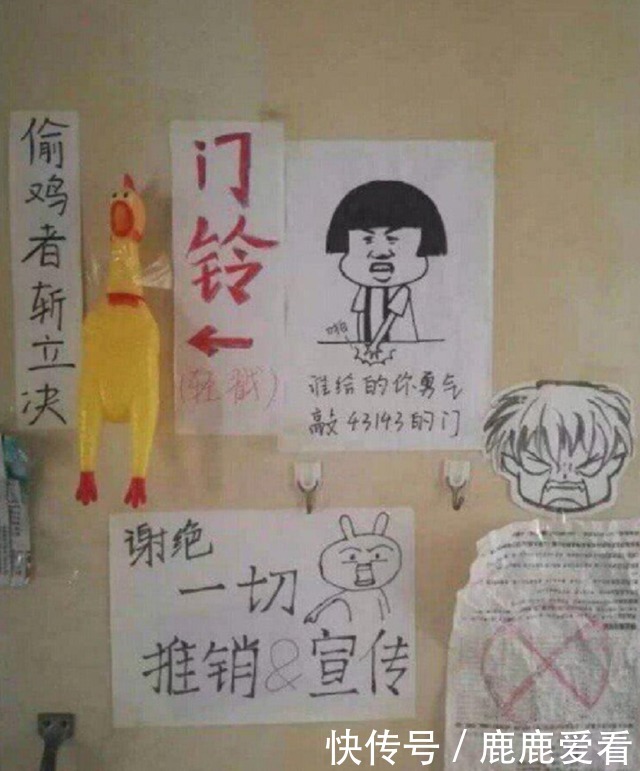 偷鸡者斩立决
门铃
(轻戳)
啪
谁给的你勇气
敲43143的门
谢绝
一切
推销&宣传
快传号/鹿鹿爱看